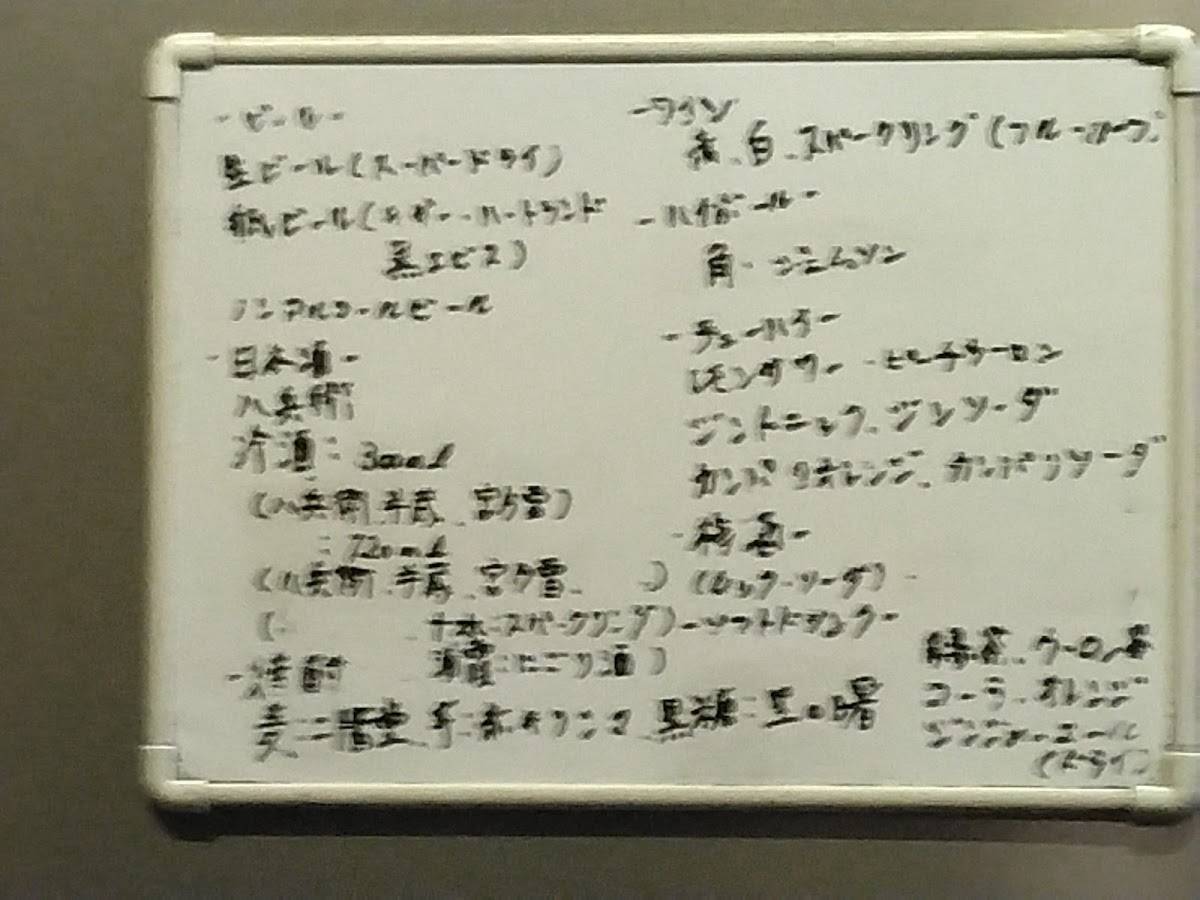 -ビール-
生ビール(スーパードライ)
瓶ビール( ハートランド
黒エビス)
ノンアルコールビール
-日本酒-
八兵衛
冷酒: 300ml
(八兵衛、半蔵、宮の雪)
: 720ml
(八兵衛、半蔵、宮の雪、 )
( スパークリング)
にごり酒)
-焼酎
麦:二階堂 芋:赤キリシマ 黒糖:里の曙
-ワイン
赤、白、スパークリング(フル
-ハイボール-
角・ジムビーム
-チューハイ-
レモンサワー
ジントニック、ジンソーダ
カンパリオレンジ、カンパリソーダ
-梅酒-
(ロック・ソーダ)
-ソフトドリンク-
緑茶、ウーロン茶
コーラ・オレンジ
ジンジャーエール
(ドライ)